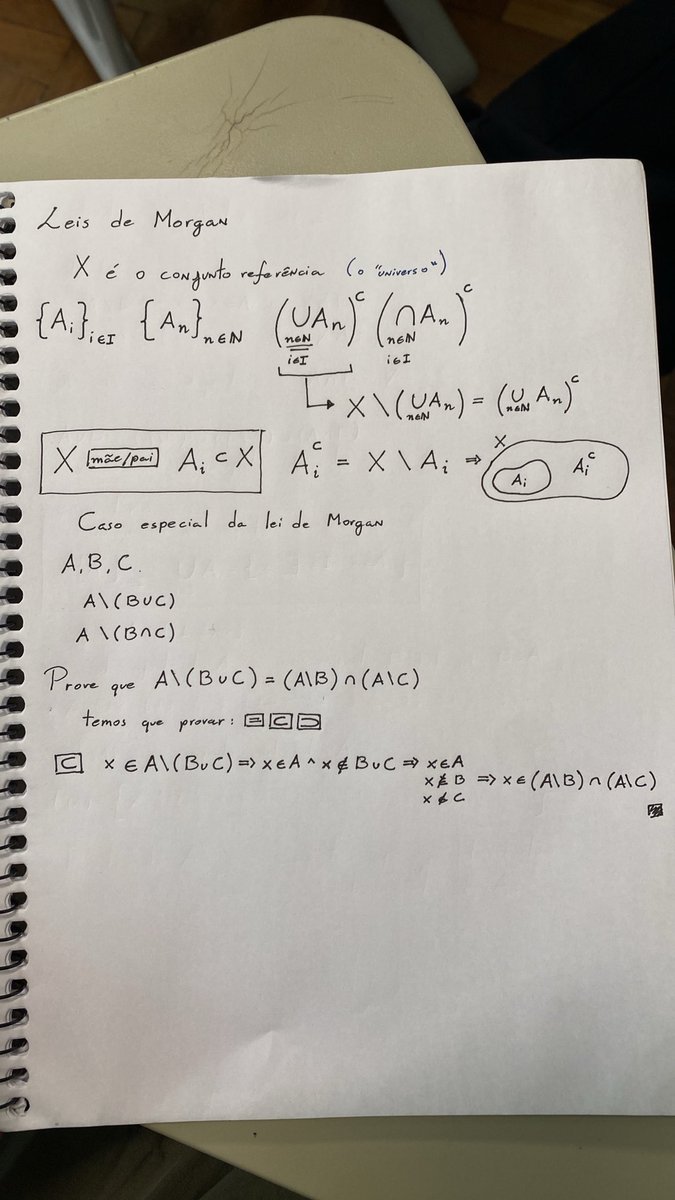 Leis de Morgan
X é o conjunto referência (o "universo")
{Aᵢ}ᵢ∈I {Aₙ}ₙ∈ℕ (∪Aₙ)ᶜ (∩Aₙ)ᶜ
n∈ℕ n∈ℕ
i∈I i∈I
↳ X \ (∪Aₙ) = (∪ Aₙ)ᶜ
n∈ℕ n∈ℕ
X mãe/pai Aᵢ ⊂ X Aᵢᶜ = X \ Aᵢ ⇒ X Aᵢ Aᵢᶜ
Caso especial da lei de Morgan
A, B, C.
A\(B∪C)
A \(B∩C)
Prove que A\(B∪C) = (A\B) ∩ (A\C)
temos que provar: = ⊂ ⊃
⊂ x ∈ A\(B∪C) ⇒ x∈A ^ x ∉ B∪C ⇒ x∈A
x∉B ⇒ x∈(A\B) ∩ (A\C)
x∉C